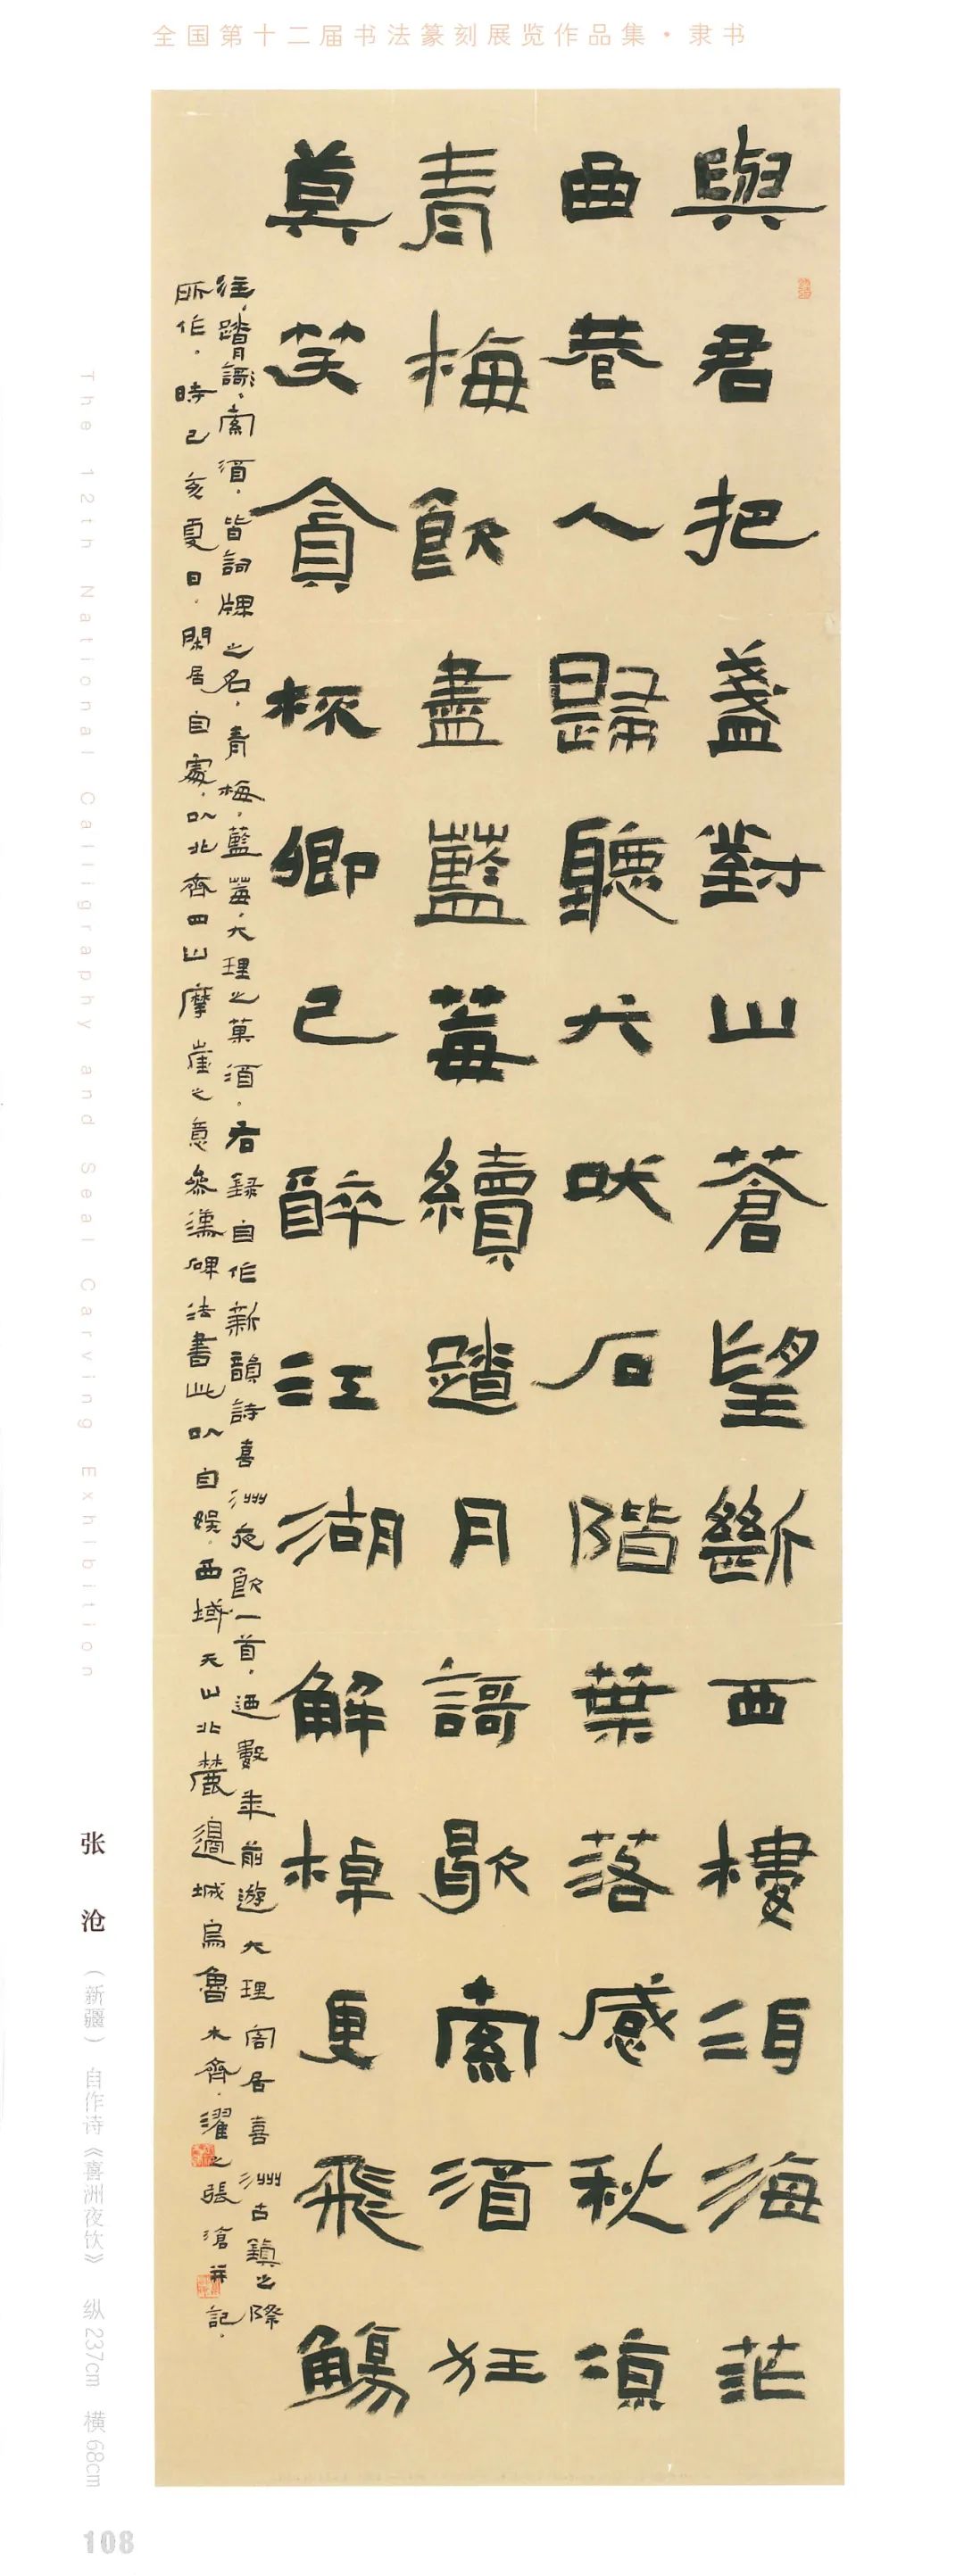 全国第十二届书法篆刻展览作品集·隶书
與君把盞對山蒼望斷西樓洱海茫
曲巷人歸聽犬吠石階葉落感秋凉
青梅飲盡藍莓續踏月謌歇索酒狂
莫笑貪杯卿已醉江湖解棹更飛觴
注，踏月謌，索酒，皆詞牌之名，青梅，藍莓，大理之菓酒。右録自作新韻詩喜洲夜飲一首，迺數年前遊大理客居喜洲古鎮之際
所作。時己亥夏日，閑居自家，以北齊四山摩崖之意參漢碑法書此以自娛，西域天山北麓邊城烏魯木齊，濯之張滄并記。
The 12th National Calligraphy and Seal Carving Exhibition
张沧（新疆） 自作诗《喜洲夜饮》 纵237cm 横68cm
108